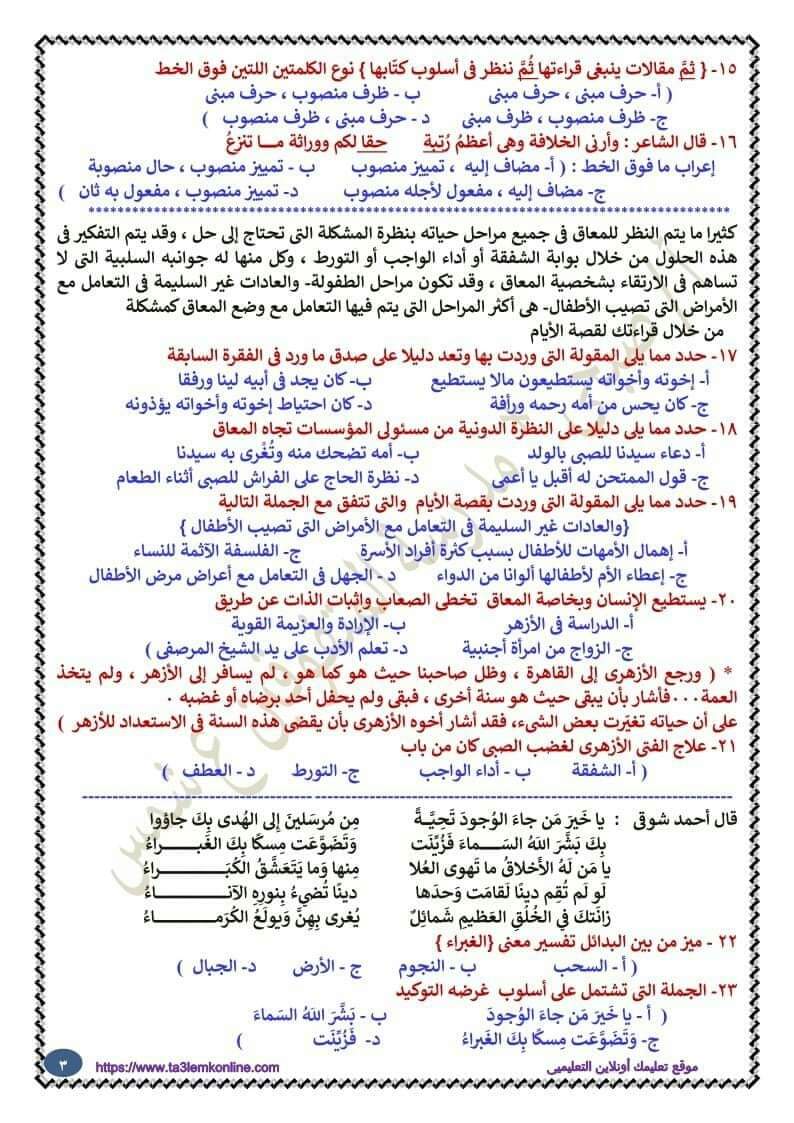 ١٥- { ثمَّ مقالات ينبغى قراءتها ثُمَّ ننظر فى أسلوب كتّابها } نوع الكلمتين اللتين فوق الخط
( أ- حرف مبنى ، حرف مبنى ب - ظرف منصوب ، حرف مبنى
ج- ظرف منصوب ، ظرف مبنى د - حرف مبنى ، ظرف منصوب )
١٦- قال الشاعر : وأرنى الخلافة وهى أعظمُ رُتبة حقا لكم ووراثة مـــا تنزعُ
إعراب ما فوق الخط : ( أ- مضاف إليه ، تمييز منصوب ب - تمييز منصوب ، حال منصوبة
ج- مضاف إليه ، مفعول لأجله منصوب د- تمييز منصوب ، مفعول به ثان )
كثيرا ما يتم النظر للمعاق فى جميع مراحل حياته بنظرة المشكلة التى تحتاج إلى حل ، وقد يتم التفكير فى
هذه الحلول من خلال بوابة الشفقة أو أداء الواجب أو التورط ، وكل منها له جوانبه السلبية التى لا
تساهم فى الارتقاء بشخصية المعاق ، وقد تكون مراحل الطفولة- والعادات غير السليمة فى التعامل مع
الأمراض التى تصيب الأطفال- هى أكثر المراحل التى يتم فيها التعامل مع وضع المعاق كمشكلة
من خلال قراءتك لقصة الأيام
١٧- حدد مما يلى المقولة التى وردت بها وتعد دليلا على صدق ما ورد فى الفقرة السابقة
أ- إخوته وأخواته يستطيعون مالا يستطيع ب- كان يجد فى أبيه لينا ورفقا
ج- كان يحس من أمه رحمه ورأفة د- كان احتياط إخوته وأخواته يؤذونه
١٨- حدد مما يلى دليلا على النظرة الدونية من مسئولى المؤسسات تجاه المعاق
أ- دعاء سيدنا للصبى بالولد ب- أمه تضحك منه وتُغْرى به سيدنا
ج- قول الممتحن له أقبل يا أعمى د- نظرة الحاج على الفراش للصبى أثناء الطعام
١٩- حدد مما يلى المقولة التى وردت بقصة الأيام والتى تتفق مع الجملة التالية
{والعادات غير السليمة فى التعامل مع الأمراض التى تصيب الأطفال }
أ- إهمال الأمهات للأطفال بسبب كثرة أفراد الأسرة ج- الفلسفة الآثمة للنساء
ج- إعطاء الأم لأطفالها ألوانا من الدواء د - الجهل فى التعامل مع أعراض مرض الأطفال
٢٠- يستطيع الإنسان وبخاصة المعاق تخطى الصعاب وإثبات الذات عن طريق
أ- الدراسة فى الأزهر ب- الإرادة والعزيمة القوية
ج- الزواج من امرأة أجنبية د- تعلم الأدب على يد الشيخ المرصفى )
* ( ورجع الأزهرى إلى القاهرة ، وظل صاحبنا حيث هو كما هو ، لم يسافر إلى الأزهر ، ولم يتخذ
العمة...فأشار بأن يبقى حيث هو سنة أخرى ، فبقى ولم يحفل أحد برضاه أو غضبه .
على أن حياته تغيّرت بعض الشىء، فقد أشار أخوه الأزهرى بأن يقضى هذه السنة فى الاستعداد للأزهر )
٢١- علاج الفتى الأزهرى لغضب الصبى كان من باب
( أ- الشفقة ب - أداء الواجب ج- التورط د - العطف )
قال أحمد شوقى : يا خَيرَ مَن جاءَ الوُجودَ تَحِيَّـةً مِن مُرسَلينَ إِلى الهُدى بِكَ جاؤوا
بِكَ بَشَّرَ اللهُ السَـــماءَ فَزُيِّنَت وَتَضَوَّعَت مِسكًا بِكَ الغَبـــراءُ
يا مَن لَهُ الأَخلاقُ ما تَهوى العُلا مِنها وَما يَتَعَشَّقُ الكُبَــــراءُ
لَو لَم تُقِم دينًا لَقامَت وَحدَها دينًا تُضيءُ بِنورِهِ الآنــــاءُ
زانَتكَ في الخُلُقِ العَظيمِ شَمائِلٌ يُغرى بِهِنَّ وَيولَعُ الكُرَمـــاءُ
٢٢ - ميز من بين البدائل تفسير معنى {الغبراء }
( أ - السحب ب - النجوم ج - الأرض د- الجبال )
٢٣- الجملة التى تشتمل على أسلوب غرضه التوكيد
( أ - يا خَيرَ مَن جاءَ الوُجودَ ب - بَشَّرَ اللهُ السَماءَ
ج- وَتَضَوَّعَت مِسكًا بِكَ الغَبراءُ د- فَزُيِّنَت )
موقع تعليمك أونلاين التعليمى https://www.ta3lemkonline.com ٣